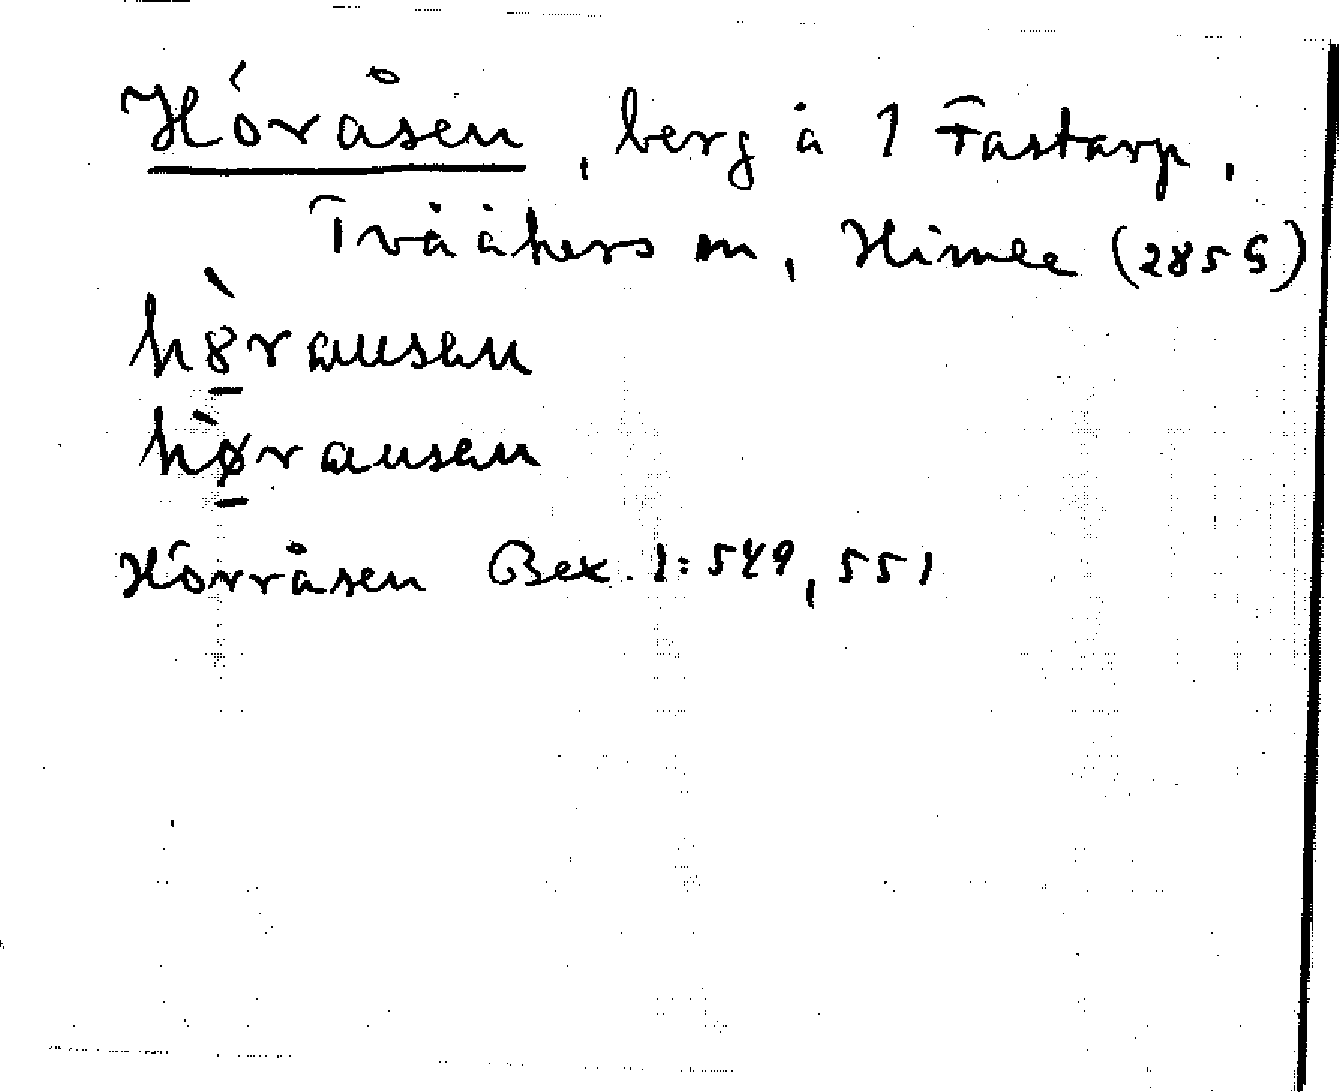 Hóråsen, berg å 1 Fastarp,
Tvååkers sn, Himle (2855)
hø̀rausen
hø̀rausen
Hórråsen Bex. 1:549, 551